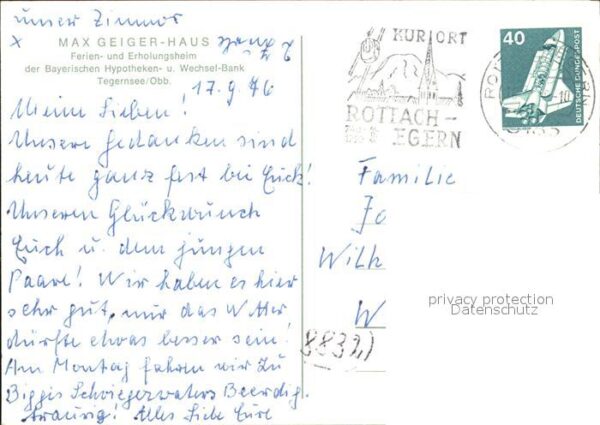 unser Zimmer
x
MAX GEIGER-HAUS
Ferien- und Erholungsheim
der Bayerischen Hypotheken- u. Wechsel-Bank
Tegernsee/Obb.
17.9.76
Meine Lieben!
Unsere Gedanken sind
heute ganz fest bei Euch!
Unseren Glückwunsch
Euch u. dem jungen
Paare! Wir haben es hier
sehr gut, nur das Wetter
dürfte etwas besser sein!
Am Montag fahren wir zu
Biggis Schwiegervaters Beerdig.
traurig! Alles Liebe Eure
KURORT
ROTTACH-
EGERN
40
DEUTSCHE BUNDESPOST
Familie
Jo
Wilh
W
8832
privacy protection
Datenschutz